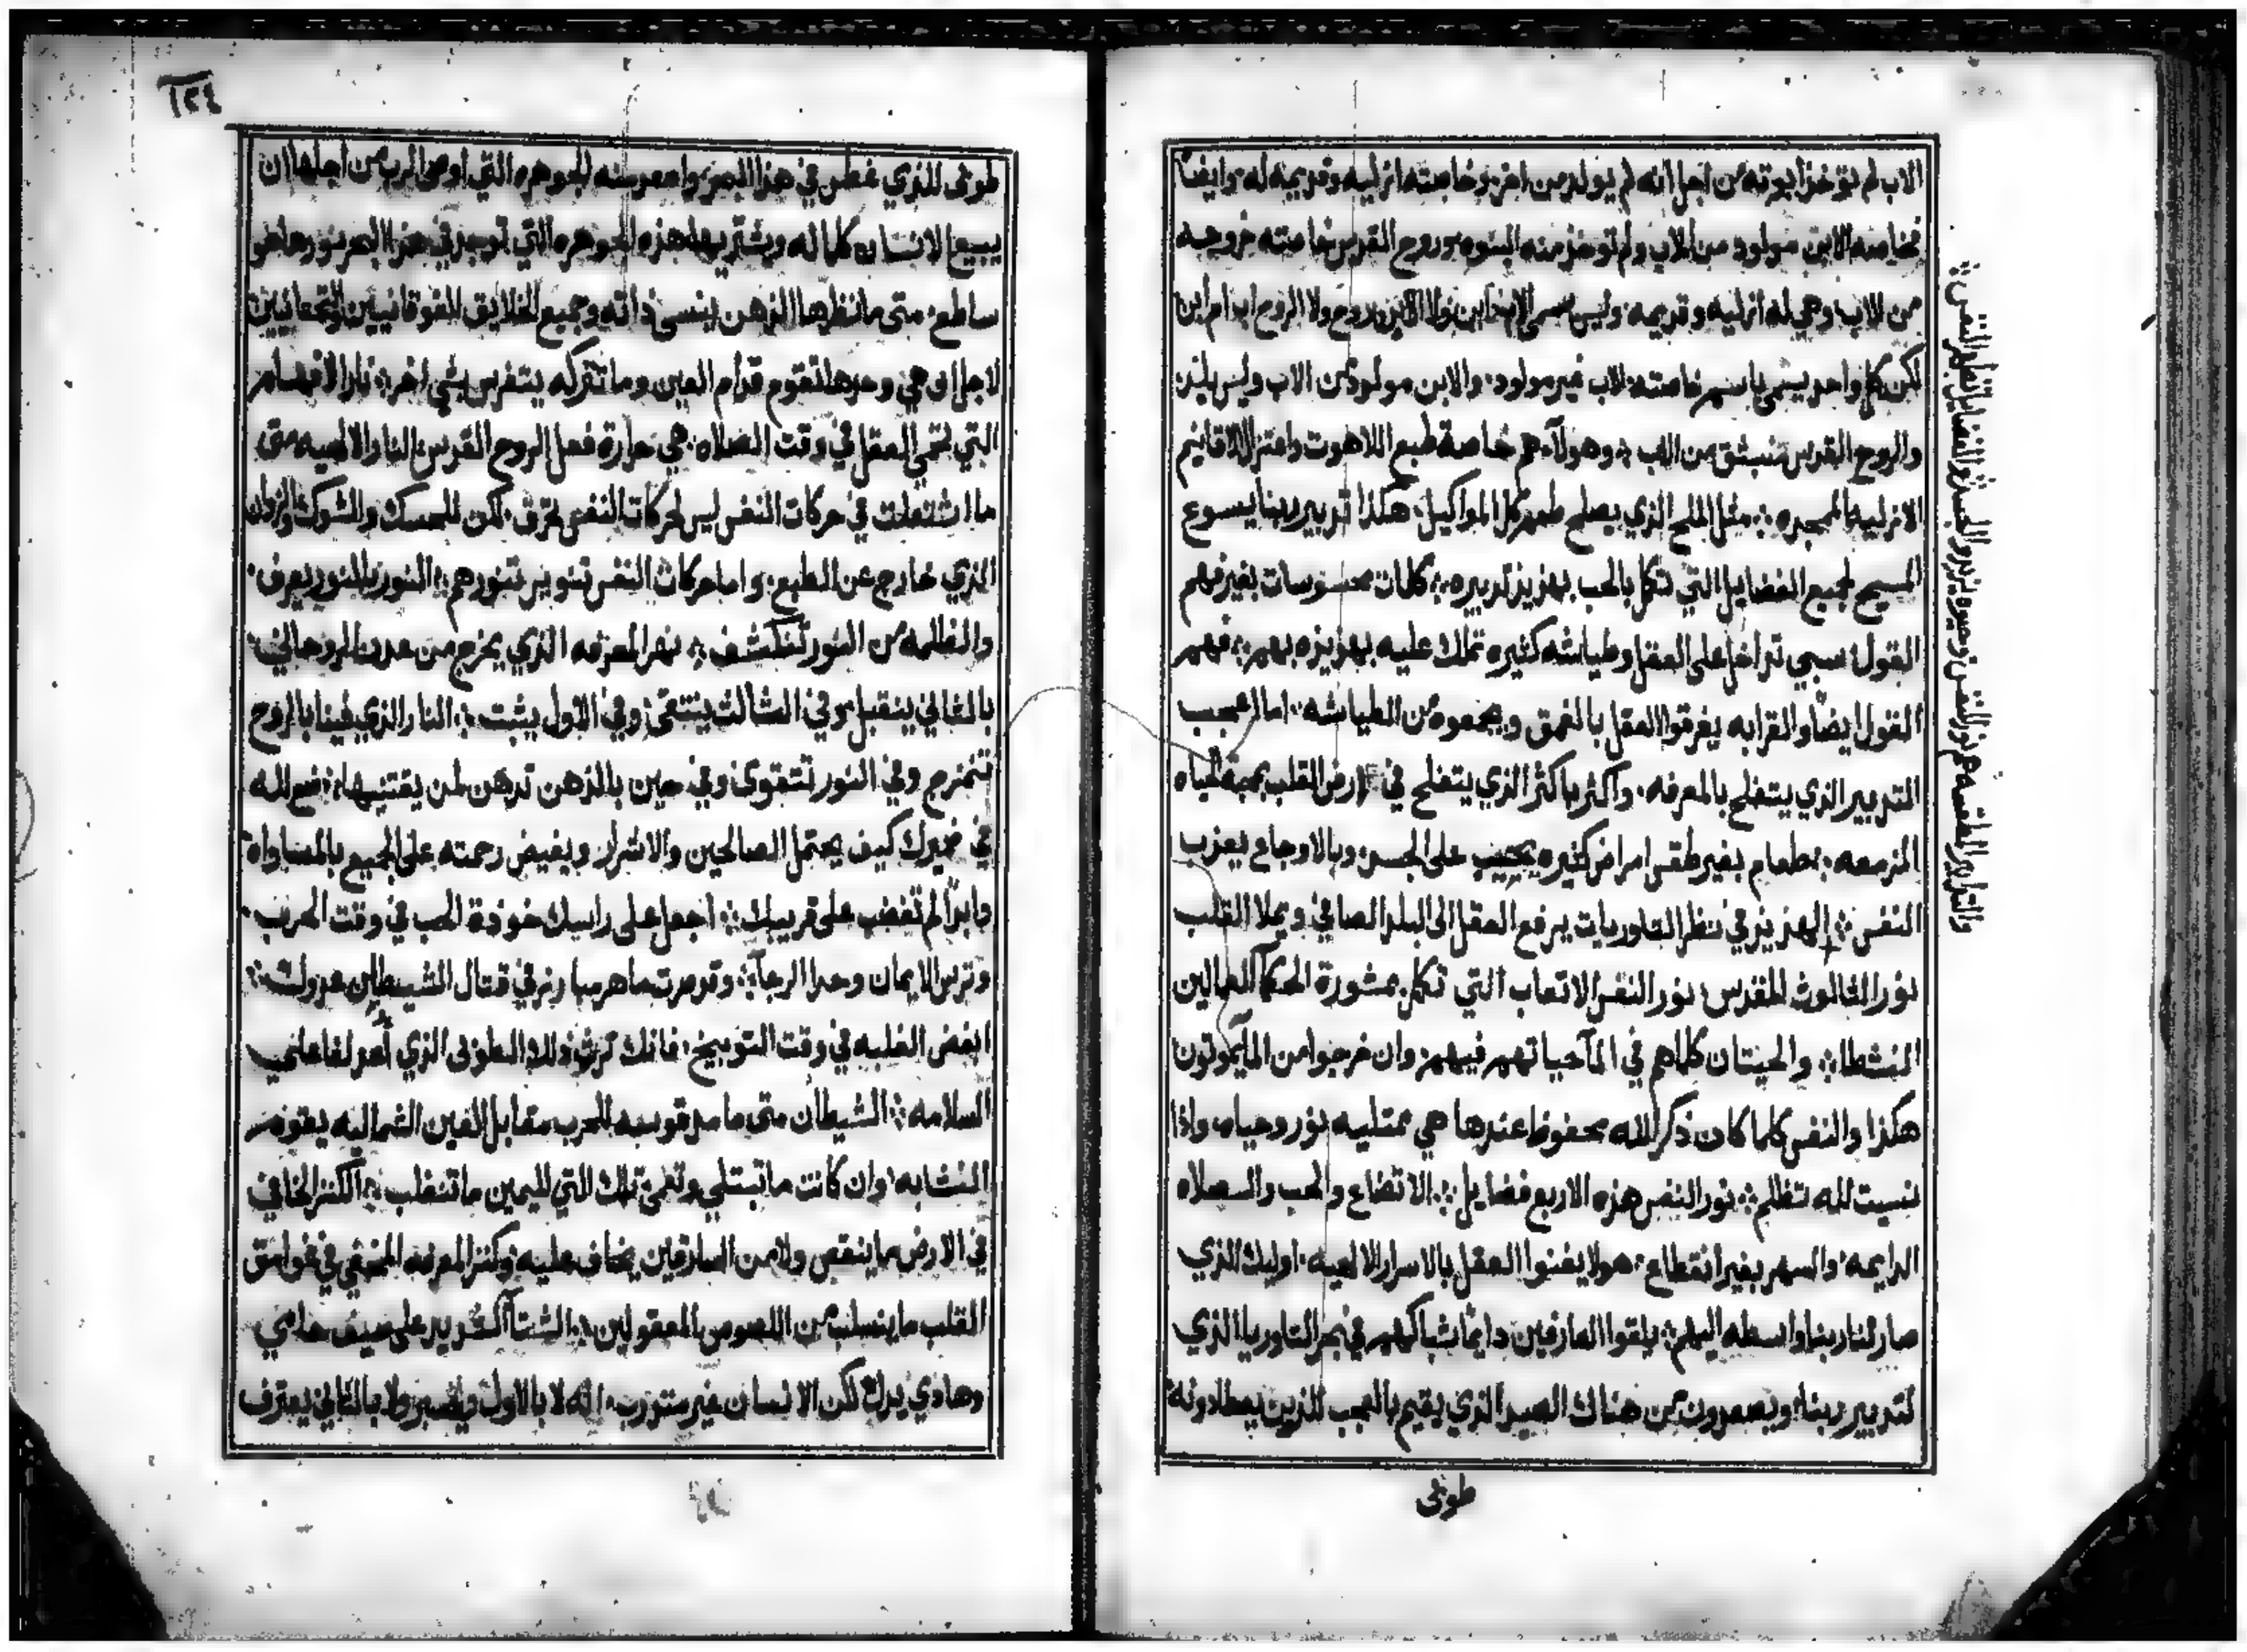 الاب لم توخذ ابوته من اجل انه لم يولد من اخر وخاصته ازليه وقديمه له وايضاً
خاصة الابن مولود من الاب ولم توخذ منه البنوه وروح القدس خاصته خروجه
من الاب وهي له ازليه وقديمه وليس يسمى الاب ابن ولا الابن روح ولا الروح اب ام ابن
لكن كل واحد يسمى باسم خاصته الاب غير مولود والابن مولود من الاب وليس يلد
والروح القدس منبثق من الاب وهولآء هم خاصة طبع اللاهوت الاقانيم
الازليه الممجده مثل الملح الذي يصلح طعم كل المواكيل هكذا تدبير ربنا يسوع
المسيح لجميع الفضايل التي تكمل بالحب بهزيز تدبيره كلمات محسوسات بغير فهم
القول سبي تداخل على العقل وطياشه كثيره تملك عليه بهزيزه بهم فهم
القول ايضاً والقرايه يغرقوا العقل بالعمق ويجمعوه من الطياشه اما العجب
التدبير الذي يتفلح بالمعرفه واكثر باكثر الذي يتفلح في ارض القلب بمحبة الحياه
المزمعه طعام بغير طقس امراض كثيره يجيب على الجسد وبالاوجاع يعذب
النفس الهزيز في نظر التاوريات يرفع العقل الى البلد الصافي ويملا القلب
نور الثالوث المقدس نور النفس الاتعاب التي تكمل بمشورة الحكمآ العمالين
النشطا والحيتان كلما هم في المآ حياتهم فيهم وان خرجوا من المآ يموتون
هكذا والنفس كلما كان ذكر الله محفوظ عندها هي ممتليه نور وحياه واذا
نسيت الله تظلم نور النفس هذه الاربع فضايل الاتضاع والحب والصلاه
الدايمه والسهر بغير انقطاع هولا يغنوا العقل بالاسرار الالهيه اوليك الذي
صار لنا ربنا واسطه اليهم يلقوا العارفين دايماً شباكهم في بحر التاوريا الذي
لتدبير ربنا ويصعدون من هناك الصيد الذي يقيم بالعجب للذين يصطادونه
طوبى
والتدابير الطقسه هم نور النفس وحيوه تدبر والجسد والفضايل تطهر النفس
١٢٤
طوبى للذي غطس في هذا البحر واصعد منه الجوهره التي اوصى الرب من اجلها ان
يبيع الانسان كلما له ويشتريها هذه الجوهره التي توجد في هذا البحر نورها هو
ساطع متى ما نظرها الذهن ينسى ذاته وجميع الخلايق الفوقانيين والتحتانيين
لاجل ان هي وحدها تقوم قدام العين وما تتركه يتفرس بشي اخر نار الاقسام
التي تحمي العقل في وقت الصلاه هي حرارة فعل الروح القدس النار الالهيه متى
ما اشتعلت في حركات النفس ليس لحركات النفس تحرق لكن للحسك والشوك والزوان
الذي خارج عن الطبع واما حركات النفس تنوير تنورهم النور بالنور يعرف
والظلمه من النور تنكشف نهر المعرفه الذي يخرج من عدن الروحاني
بالثاني ينقبل وفي الثالث ينتقى وفي الاول يثبت النار الذي فينا بالروح
تتمزج وفي النور تتقوى وفي حين بالذهن تدهن لمن يقتنيها ضع الله
في ضميرك كيف يحتمل الصالحين والاشرار ويفيض رحمته على الجميع بالمساواه
وابداً لم تغضب على قريبك اجعل على راسك خوذة الحب في وقت الحرب
وترس الايمان وحدا الرجآ وقد صرت ماهر مبارز في قتال الشيطان عدوك
ابغض الغلبه في وقت التوبيخ فانك ترث ذلك الطوبى الذي أعد لفاعلي
السلامه الشيطان متى ما مد قوسه للحرب مقابل العين الشماليه يقوم
النشابه وان كانت ما تبتلي وتعمى تلك التي لليمين ما تنغلب الكنز الخافي
في الارض ما ينقص ولا من السارقين يخاف عليه وكنز المعرفه المخفي في غوامق
القلب ما ينسلب من اللصوص المعقولين الشتآ الشديد على صيف هادي
وهادي يدل لكن الانسان غير متدرب انه لا بالاول ولا بالثاني يعترف